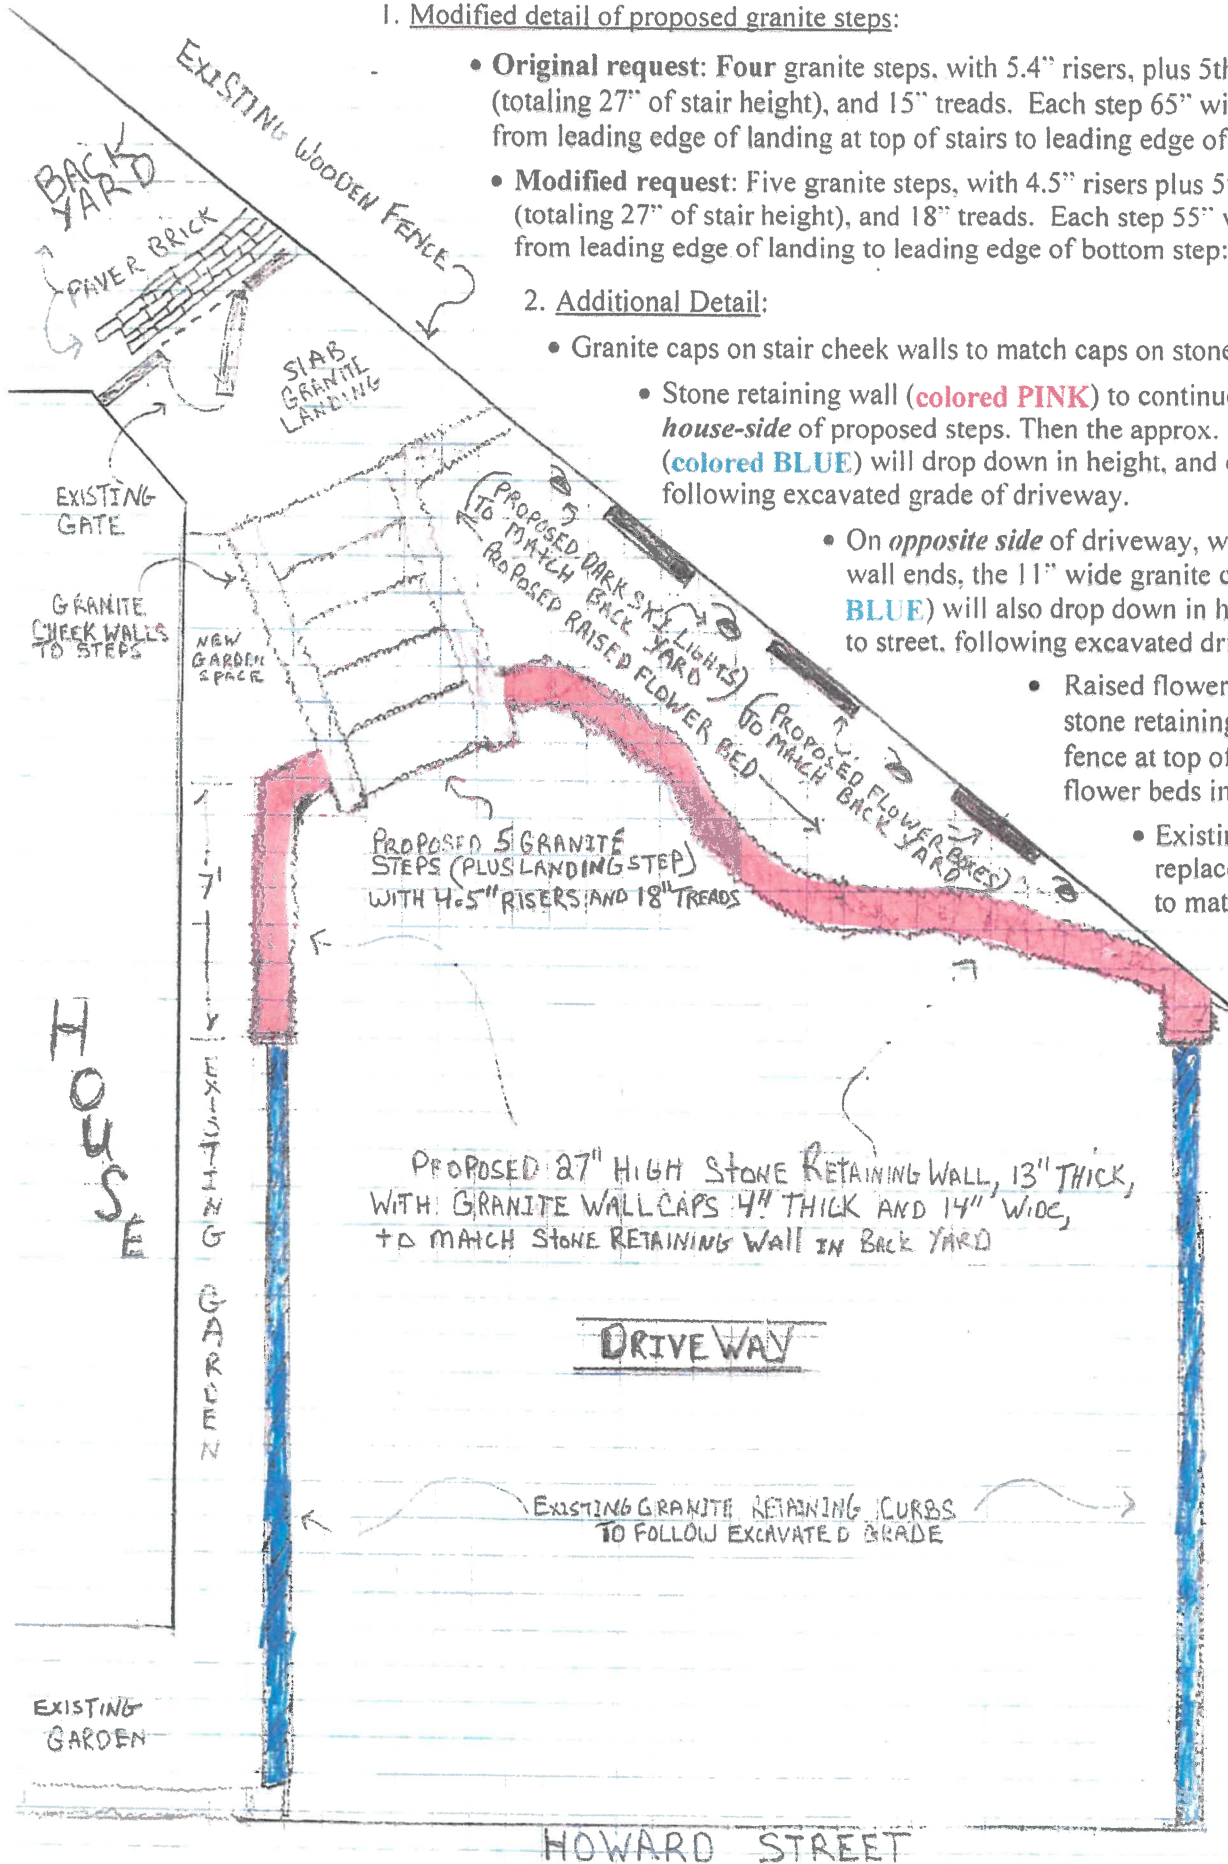 1. Modified detail of proposed granite steps:
• Original request: Four granite steps, with 5.4" risers, plus 5th
(totaling 27" of stair height), and 15" treads. Each step 65" wi
from leading edge of landing at top of stairs to leading edge of
• Modified request: Five granite steps, with 4.5" risers plus 5
(totaling 27" of stair height), and 18" treads. Each step 55"
from leading edge of landing to leading edge of bottom step:
2. Additional Detail:
• Granite caps on stair cheek walls to match caps on stone
• Stone retaining wall (colored PINK) to continu
house-side of proposed steps. Then the approx.
(colored BLUE) will drop down in height, and
following excavated grade of driveway.
• On opposite side of driveway, w
wall ends, the 11" wide granite c
BLUE) will also drop down in h
to street, following excavated dri
• Raised flower
stone retaining
fence at top of
flower beds in
• Existin
replac
to mat
EXISTING WOODEN FENCE
BACK
YARD
PAVER BRICK
SLAB
GRANITE
LANDING
EXISTING
GATE
GRANITE
CHEEK WALLS
TO STEPS
NEW
GARDEN
SPACE
(PROPOSED DARK SKY LIGHTS)
TO MATCH BACK YARD
PROPOSED RAISED FLOWER BED
(PROPOSED FLOWER BOXES)
TO MATCH BACK YARD
PROPOSED 5 GRANITE
STEPS (PLUS LANDING STEP)
WITH 4.5" RISERS AND 18" TREADS
7'
HOUSE
EXISTING GARDEN
PROPOSED 27" HIGH STONE RETAINING WALL, 13" THICK,
WITH GRANITE WALL CAPS 4" THICK AND 14" WIDE,
TO MATCH STONE RETAINING WALL IN BACK YARD
DRIVEWAY
EXISTING GRANITE RETAINING CURBS
TO FOLLOW EXCAVATED GRADE
EXISTING
GARDEN
HOWARD STREET